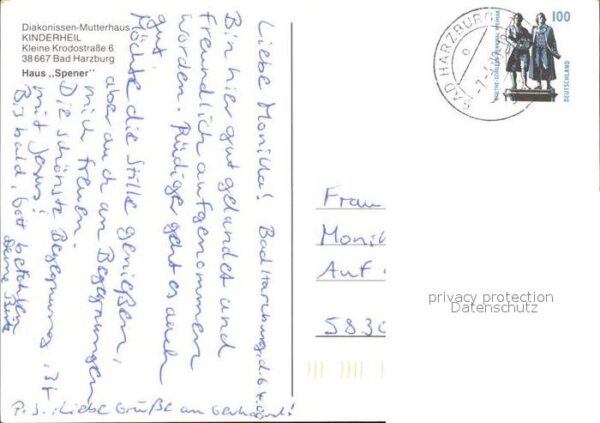 Diakonissen-Mutterhaus
KINDERHEIL
Kleine Krodostraße 6
38667 Bad Harzburg
Haus „Spener"
Liebe Monika! Bad Harzburg, d.
Bin hier gut gelandet und
freundlich aufgenommen
worden. Rüdiger geht es auch
gut.
Möchte die Stille genießen,
aber auch an Begegnungen
mich freuen.
Die schönste Begegnung ist
mit Jesus!
Bis bald, Gott befohlen
Deine
P.S.: Liebe Grüße an Gerhard!
BAD HARZBURG
100
DEUTSCHLAND
GOETHE-SCHILLER-DENKMAL WEIMAR
Frau
Moni
Auf
5830
privacy protection
Datenschutz